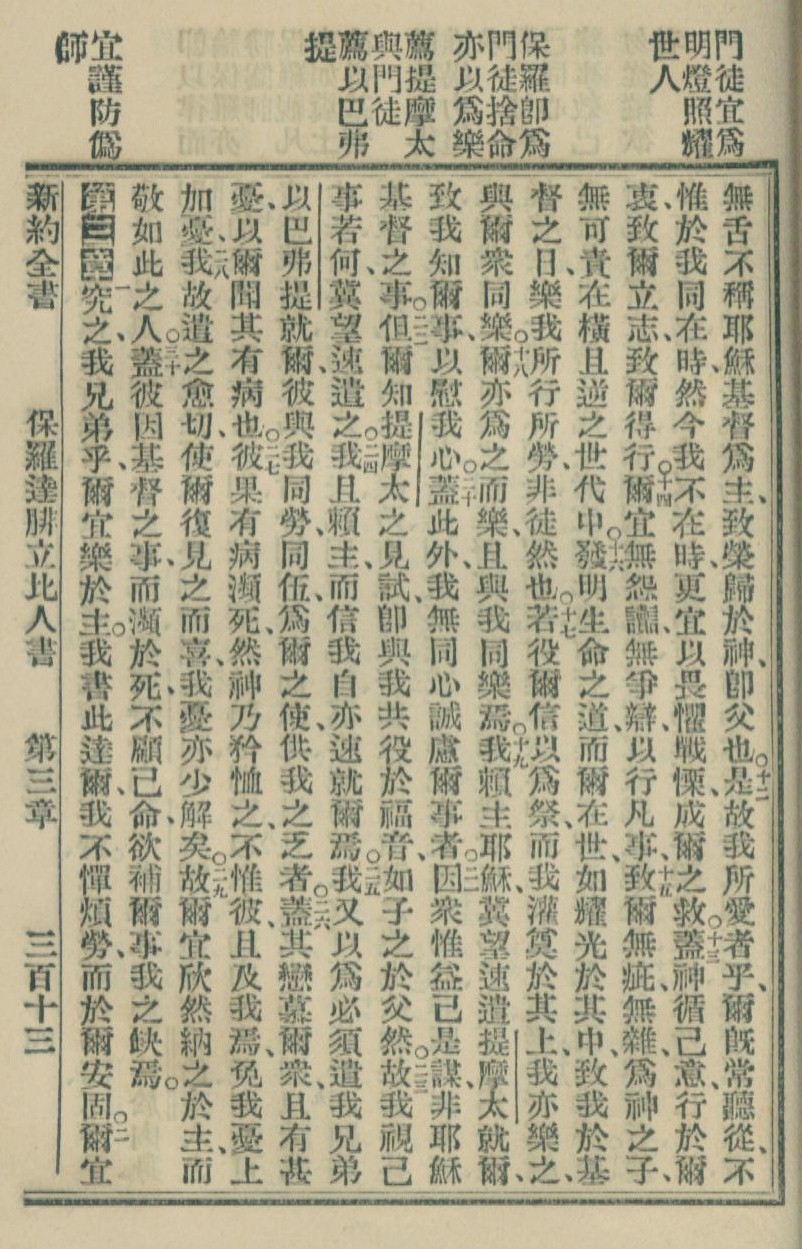 門徒宜爲
明燈照耀
世人
保羅卽爲
門徒捨命
亦以爲樂
薦提摩太
與門徒
薦以巴弗
提
宜謹防僞
師
無舌不稱耶穌基督爲主、致榮歸於神、卽父也。○十二是故我所愛者乎、爾旣常聽從、不
惟於我同在時、然今我不在時、更宜以畏懼戰慄、成爾之救、○十三蓋神循己意、行於爾
衷、致爾立志、致爾得行。○十四爾宜無怨讟、無爭辯、以行凡事、十五致爾無疵、無雜、爲神之子、
無可責、在橫且逆之世代中、○十六發明生命之道、而爾在世、如耀光於其中、致我於基
督之日、樂我所行所勞、非徒然也。○十七若役爾信以爲祭、而我灌奠於其上、我亦樂之、
與爾衆同樂、○十八爾亦爲之而樂、且與我同樂焉。○十九我賴主耶穌、冀望速遣提摩太就爾、
致我知爾事、以慰我心、○二十蓋此外、我無同心誠慮爾事者、○二一因衆惟益己是謀、非耶穌
基督之事。○二二但爾知提摩太之見試、卽與我共役於福音、如子之於父然、○二三故我視己
事若何、冀望速遣之、○二四我且賴主、而信我自亦速就爾焉。○二五我又以爲必須遣我兄弟
以巴弗提就爾、彼與我同勞、同伍、爲爾之使、供我之乏者、○二六蓋其戀慕爾衆、且有甚
憂、以爾聞其有病也、○二七彼果有病瀕死、然神乃矜恤之、不惟彼、且及我焉、免我憂上
加憂、○二八我故遣之愈切、使爾復見之而喜、我憂亦少解矣。○二九故爾宜欣然納之於主、而
敬如此之人、○三十蓋彼因基督之事、而瀕於死、不顧己命、欲補爾事我之缺焉。
第三章一究之、我兄弟乎、爾宜樂於主。我書此達爾、我不憚煩勞、而於爾安固。○二爾宜
新約全書 保羅達腓立比人書 第三章 三百十三